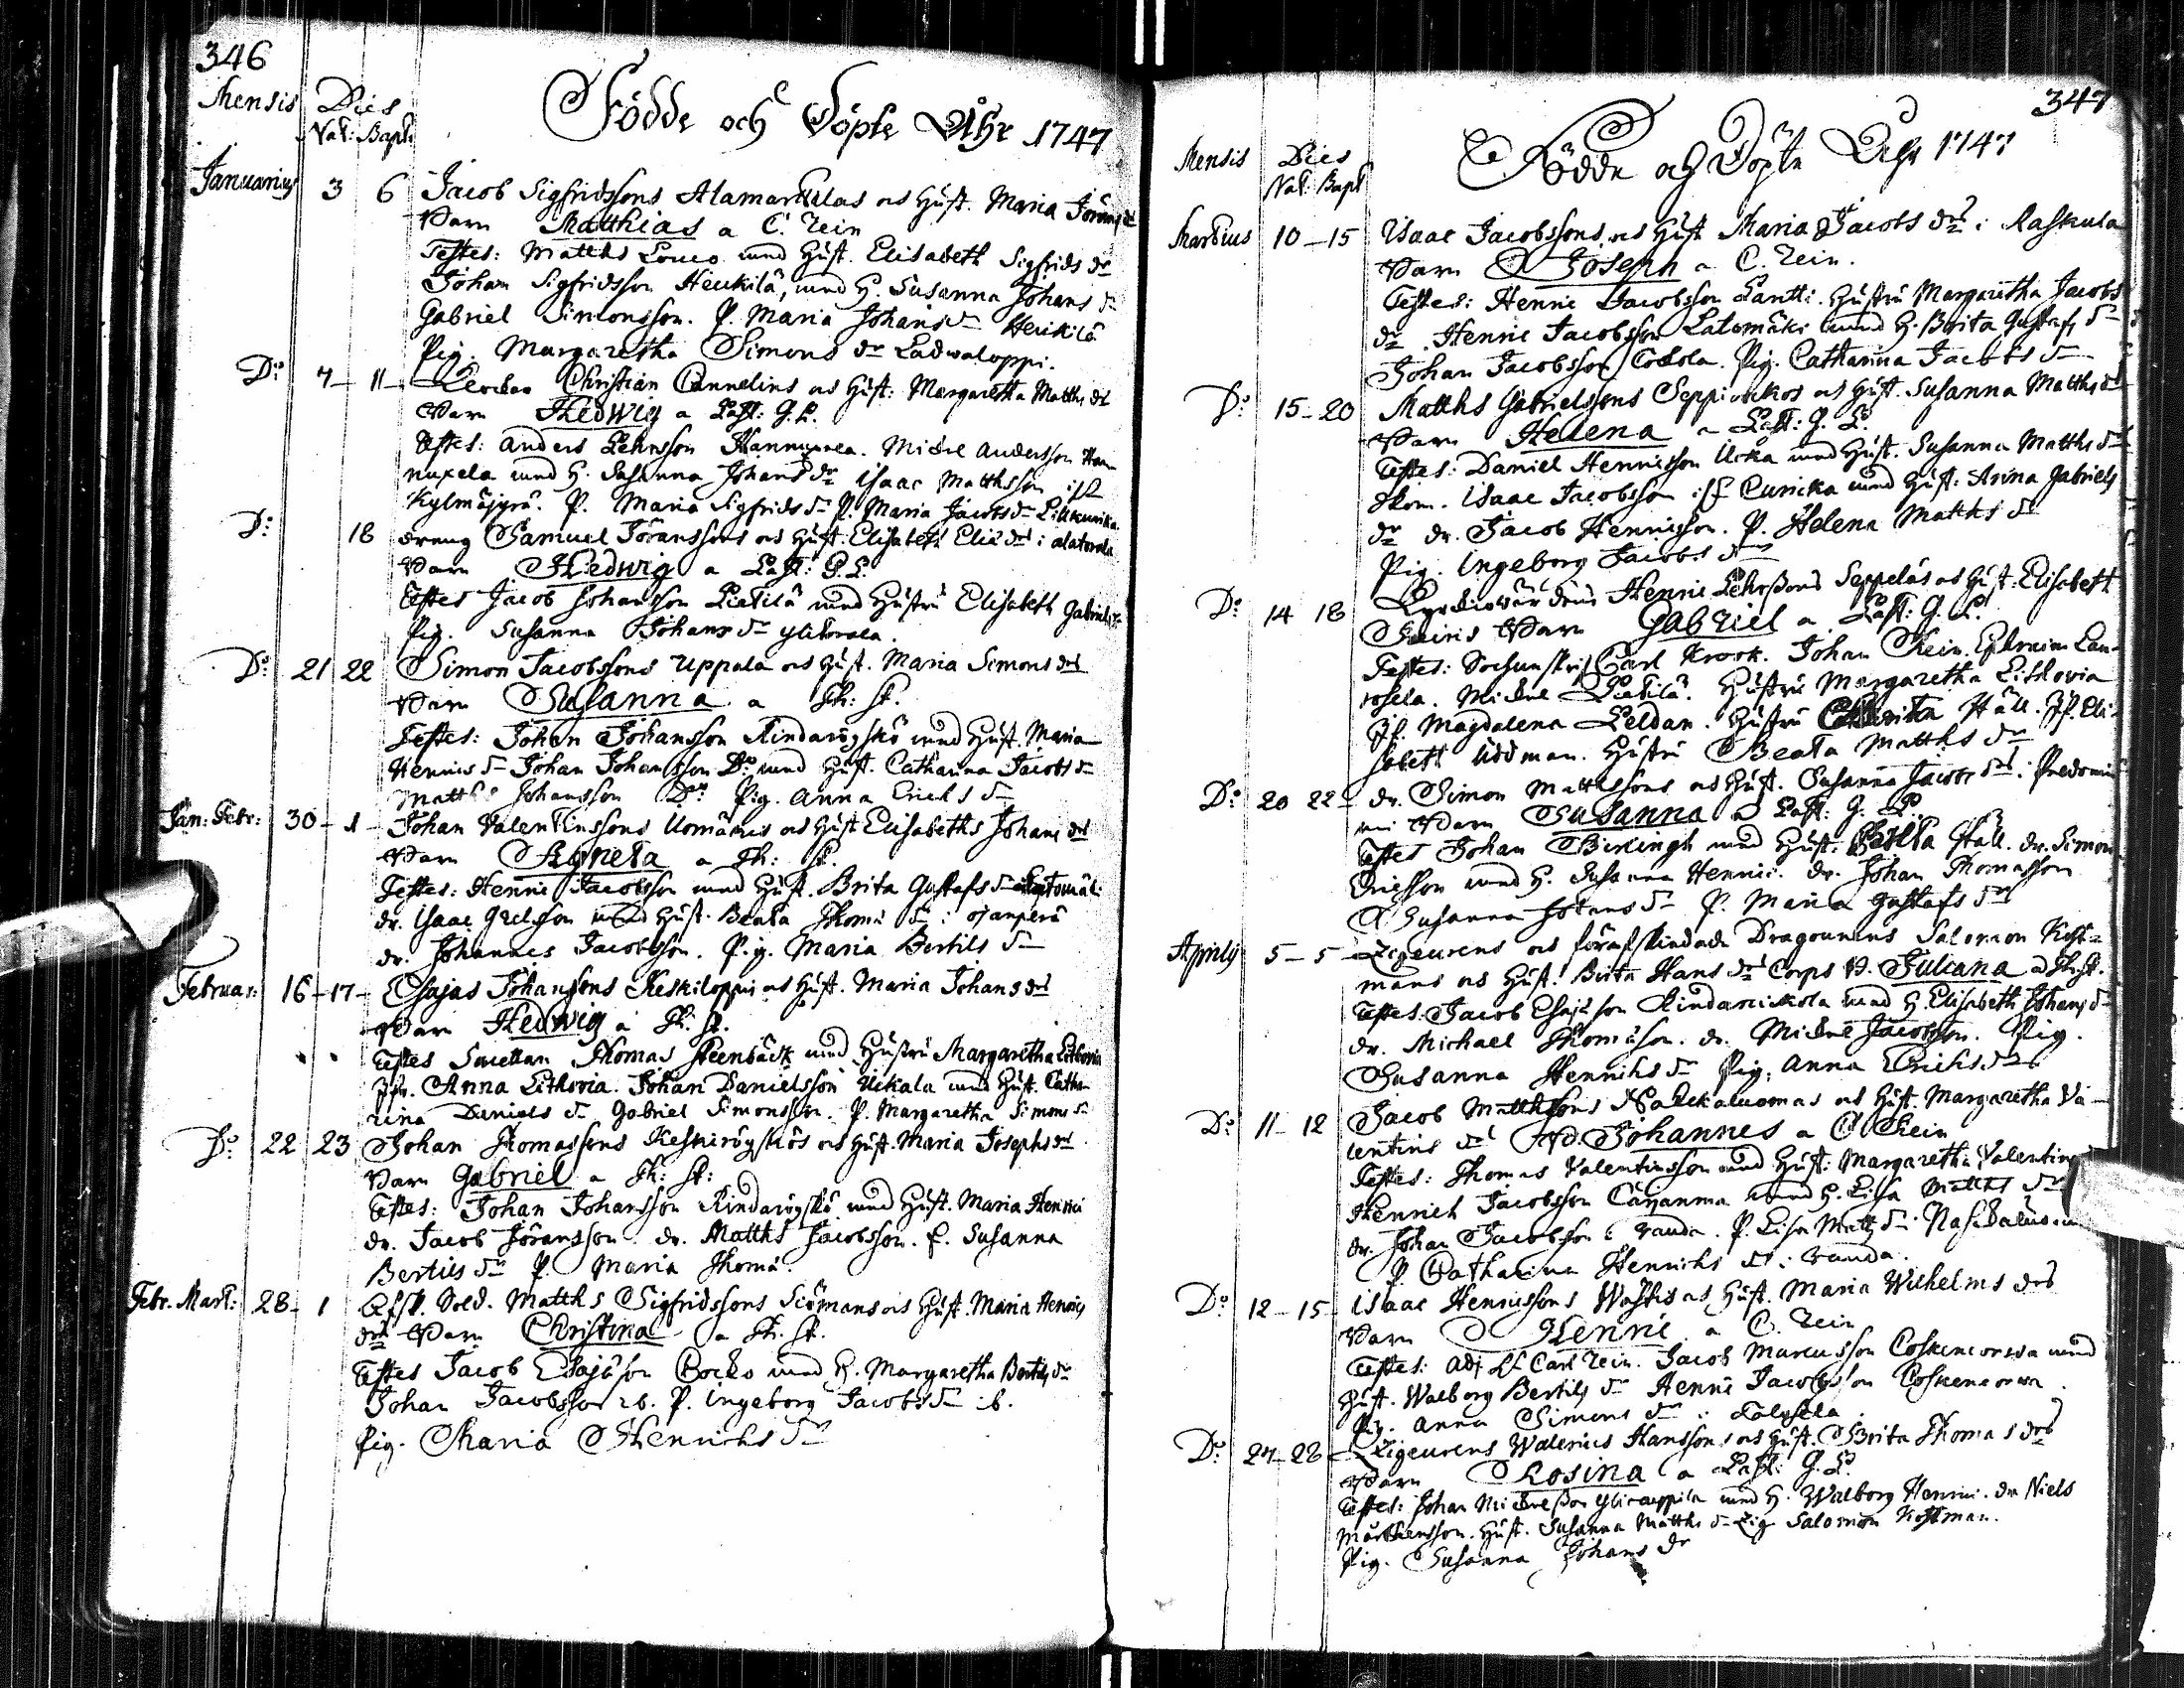 346
Mensis Dies
Nat: Bapt:
Födde och Döpte Åhr 1747
Januarius 3 6 Jacob Sigfridssons Alamarkulas och Hust. Maria Jörans dr
Barn Matthias a C. Rein
Testes: Matths Louco med Hust. Elisabeth Sigfrids dr
Johan Sigfridsson Heickilä, med H. Susanna Johans dr
Gabriel Simonsson. P. Maria Johans dr Heickilä
Pig. Margaretha Simons dr Ladwaloppi.
Do 7 - 11 - Christian Cannelins och Hust: Margaretha Matths dr
Barn Hedwig a Past: G. L.
Testes: Anders Lehrsson Michel Andersson Han-
nuxela med H. Susanna Johans dr Isaac Mattsson
Kylmäjyrä. P. Maria Sigfrids dr P. Maria Jacobs dr Lillkunika
Do 18 dreng Samuel Jöranssons och Hust. Elisabeth Eliæ dr i alatorola
Barn Hedwig a Past: G. L.
Testes Jacob Johansson Pietilä med Hustru Elisabeth Gabriels dr
Pig. Susanna Johans dr ylitorola.
Do 21 22 Simon Jacobssons Uppala och Hust. Maria Simons dr
Barn Susanna a Th: St.
Testes: Johan Johansson Rindaröyskö med Hust. Maria
Hennics dr Johan Johansson Do med Hust. Catharina Jacobs dr
Matths Johansson Do Pig. Anna Erichs dr
Jan: Febr: 30 - 1 - Johan Valentinssons Uomäkis och Hust Elisabeths Johans dr
Barn Agneta a Th: St.
Testes: Henric Jacobsson med Hust. Brita Gustafs dr
dr. Isaac Grelsson med Hust. Beata Thomæ dr i ojanperä
dr. Johannes Jacobsson. Pig. Maria Bertils dr
Februar: 16 - 17 - Esajas Johanssons Keskiloppis och Hust. Maria Johans dr
Barn Hedwig a Th. St.
Testes Thomas Steenbäck med Hustru Margaretha Lithovia
Jfr. Anna Lithovia. Johan Danielsson Uckala med Hust. Catha-
rina Daniels dr Gabriel Simonsson. P. Margaretha Simons dr
Do 22 23 Johan Thomassons Keskiröyskös och Hust. Maria Josephs dr
Barn Gabriel a Th: St:
Testes: Johan Johansson Rindaröyskö med Hust. Maria Henrici
dr. Jacob Jöransson. dr. Matths Jacobsson. P. Susanna
Bertils dr P. Maria Thomæ
Febr. Mart: 28 - 1 Afsk. Sold. Matths Sigfridssons Siömans och Hust. Maria Henrics
dr Barn Christina a Th. St.
Testes Jacob Esajæson Bocko med H. Margaretha Bertils dr
Johan Jacobsson ib. P. Ingeborg Jacobs dr ib.
Pig. Maria Henrichs dr
347
Mensis Dies
Nat: Bapt
Födde och Döpte Åhr 1747
Martius 10 - 15 Isaac Jacobssons och Hust Maria Jacobs dr i Raskula
Barn Joseph a C. Rein.
Testes: Henric Jacobsson Lantti. Hustru Margaretha Jacobs
dr. Henric Jacobsson Latomäki med H. Brita Gustafs dr
Johan Jacobsson Cockola. Pig. Catharina Jacobs dr
Do 15 - 20 Matths Gabrielssons Seppi och Hust. Susanna Matths dr
Barn Helena a Past: G. L.
Testes: Daniel Henricsson Ucka med Hust. Susanna Matths dr
Skom. Isaac Jacobsson Cunicka med Hust: Anna Gabriels
dr dr. Jacob Henricsson. P. Helena Matths dr
Pig. Ingeborg Jacobs dr
Do 14 18 Kyrckiowärdens Henric Lehrssons Seppeläs och Hust. Elisabeth
Barn Gabriel a Past: G. L.
Testes: Carl Krook. Johan Rein. Ephraim Lau-
rosela. Michel Pietilä. Hustru Margaretha Lithovia
Jf. Magdalena Peldan. Hustru Ståll. Jf. Eli-
sabeth Uddman. Hustru Beata Matths dr
Do 20 22 - dr. Simon Matthssons och Hust. Susanna Jacobs dr i
Barn Susanna a Past: G. L.
Testes Johan Thiringh med Hust. Ståll. dr. Simon
Ericsson med H. Susanna Henrici. dr. Johan Thomasson
Susanna Johans dr P. Maria Gustafs dr
Aprilis 5 - 5 - Zigeurens och förafskiedade Dragounens Salomon Kost-
mans och Hust. Brita Hans dr Corps B. Juliana a Th. St.
Testes. Jacob Esajæson med H. Elisabeth Johans dr
dr. Michael Thomæson. dr. Michel Jacobsson. Pig.
Susanna Henrichs dr Pig. Anna Erichs dr
Do 11 - 12 Jacob Matthssons och Hust. Margaretha Va-
lentins dr Bd. Johannes a C Rein
Testes: Thomas Valentinsson med Hust: Margaretha Valentins
Henrich Jacobsson med H. Lisa Matths dr
dr. Johan Jacobsson i randa. P. Lisa Matts dr
P. Catharina Henrichs dr i randa.
Do 12 - 15 - Isaac Henricssons Wästis och Hust. Maria Wilhelms dr
Barn Henric a C. Rein
Testes: Carl Rein. Jacob Marcusson Coskencorwa med
Hust. Walborg Bertils dr Henric Jacobsson Coskencorwa
Pig. Anna Simons dr i
Do 27 - 28 - Zigeurens Walerius Hanssons och Hust. Brita Thomas dr
Barn Rosina a Past: G. L.
Testes: Johan Michelsson ylicauppila med H. Walborg Henrici. dr Niels
Mårthensson. Hust. Susanna Matths dr Zig Salomon Kostman.
Pig. Susanna Johans dr